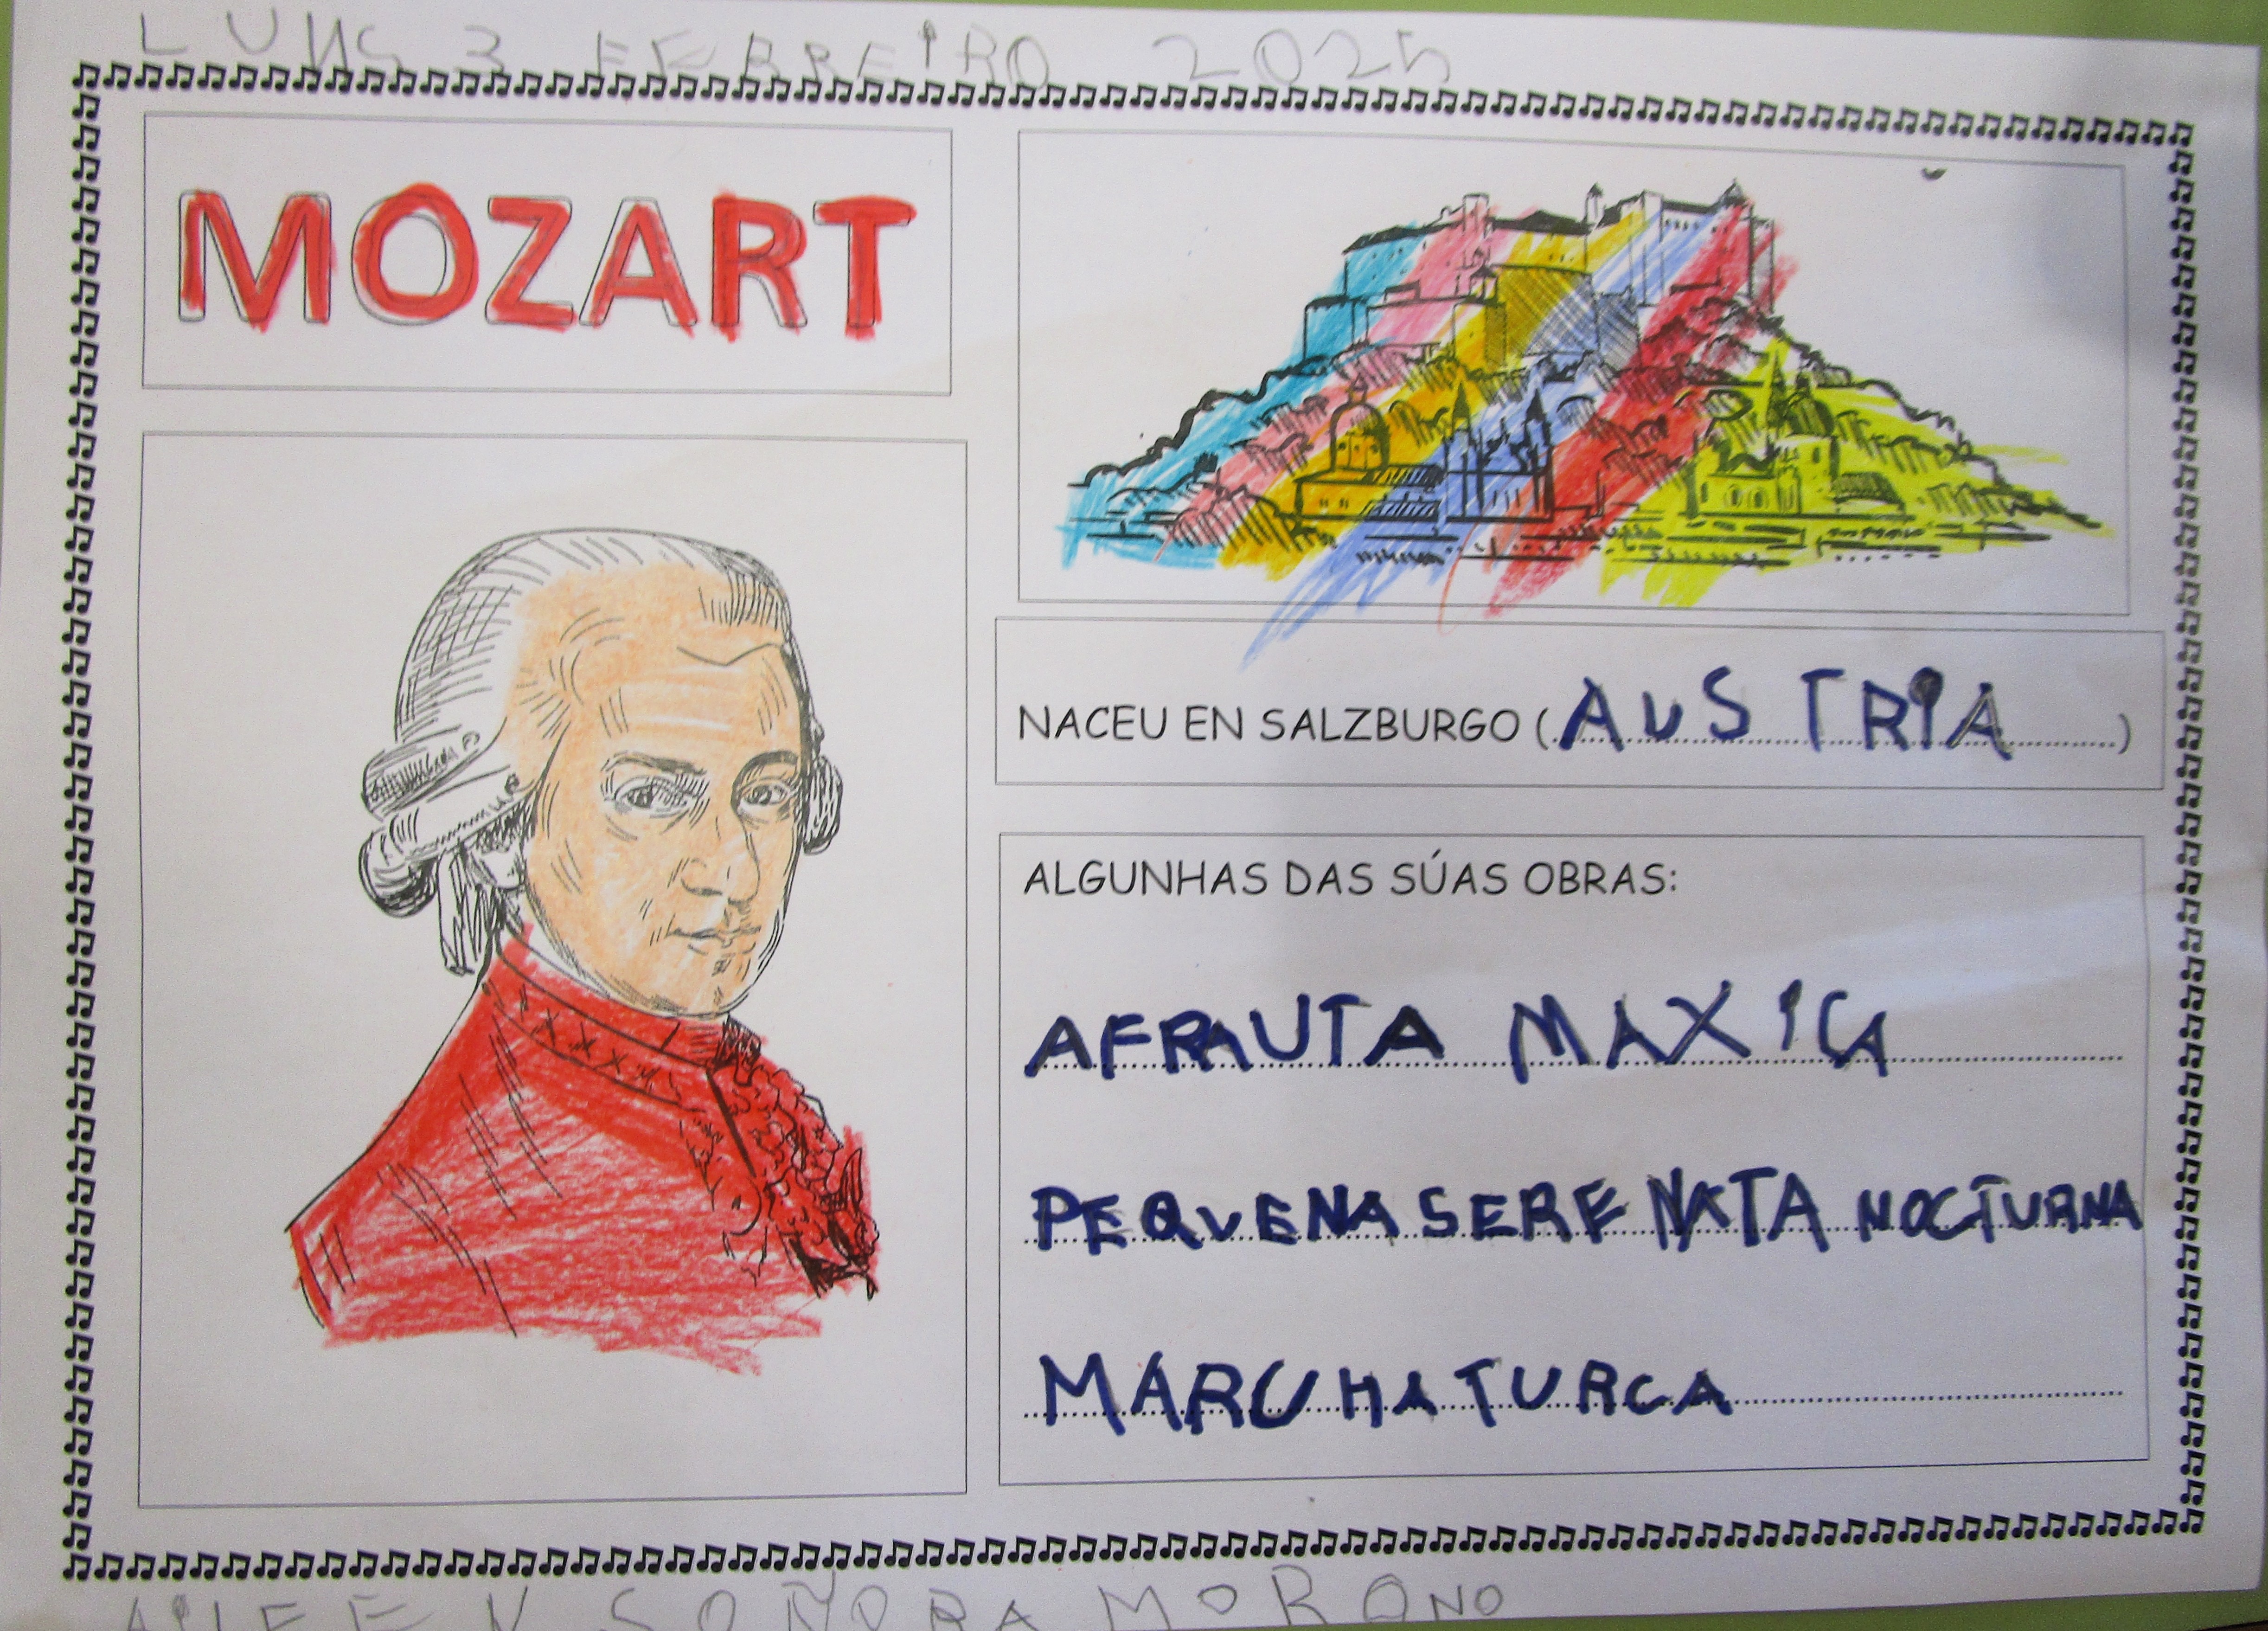 LUNS 3 FEBREIRO 2025
MOZART
NACEU EN SALZBURGO (AUSTRIA)
ALGUNHAS DAS SÚAS OBRAS:
A FRAUTA MAXICA
PEQUENA SERENATA NOCTURNA
MARCHA TURCA
AILEEN SOÑORA MORONO